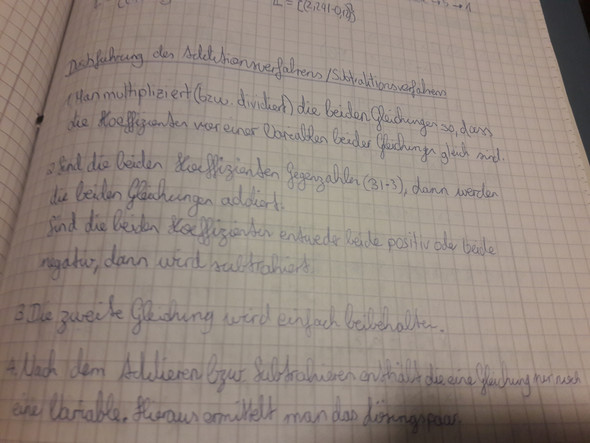 L = {(2,241-0,18)}
Durchführung des Additionsverfahrens/Subtraktionsverfahrens
1 Man multipliziert (bzw. dividiert) die beiden Gleichungen so, dass
die Koeffizienten vor einer Variablen beider Gleichungen gleich sind.
2. Sind die beiden Koeffizienten Gegenzahlen (3|-3), dann werden
die beiden Gleichungen addiert.
Sind die beiden Koeffizienten entwede beide positiv oder beide
negativ, dann wird subtrahiert.
3. Die zweite Gleichung wird einfach beibehalten.
4. Nach dem Addieren bzw. Subtrahieren enthält die eine Gleichung nur noch
eine Variable. Hieraus ermittelt man das Lösungspaar.